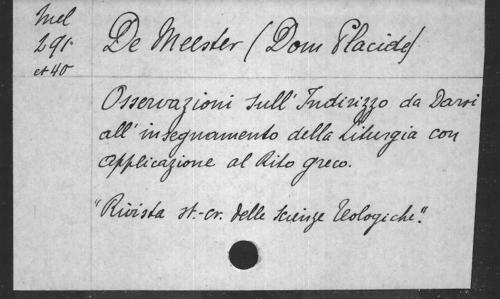 Mel
291.
et 40
De Meester (Dom Placide)
Osservazioni sull'Indirizzo da Darsi
all'insegnamento della Liturgia con
applicazione al Rito greco.
"Rivista st.-cr. delle scienze teologiche".